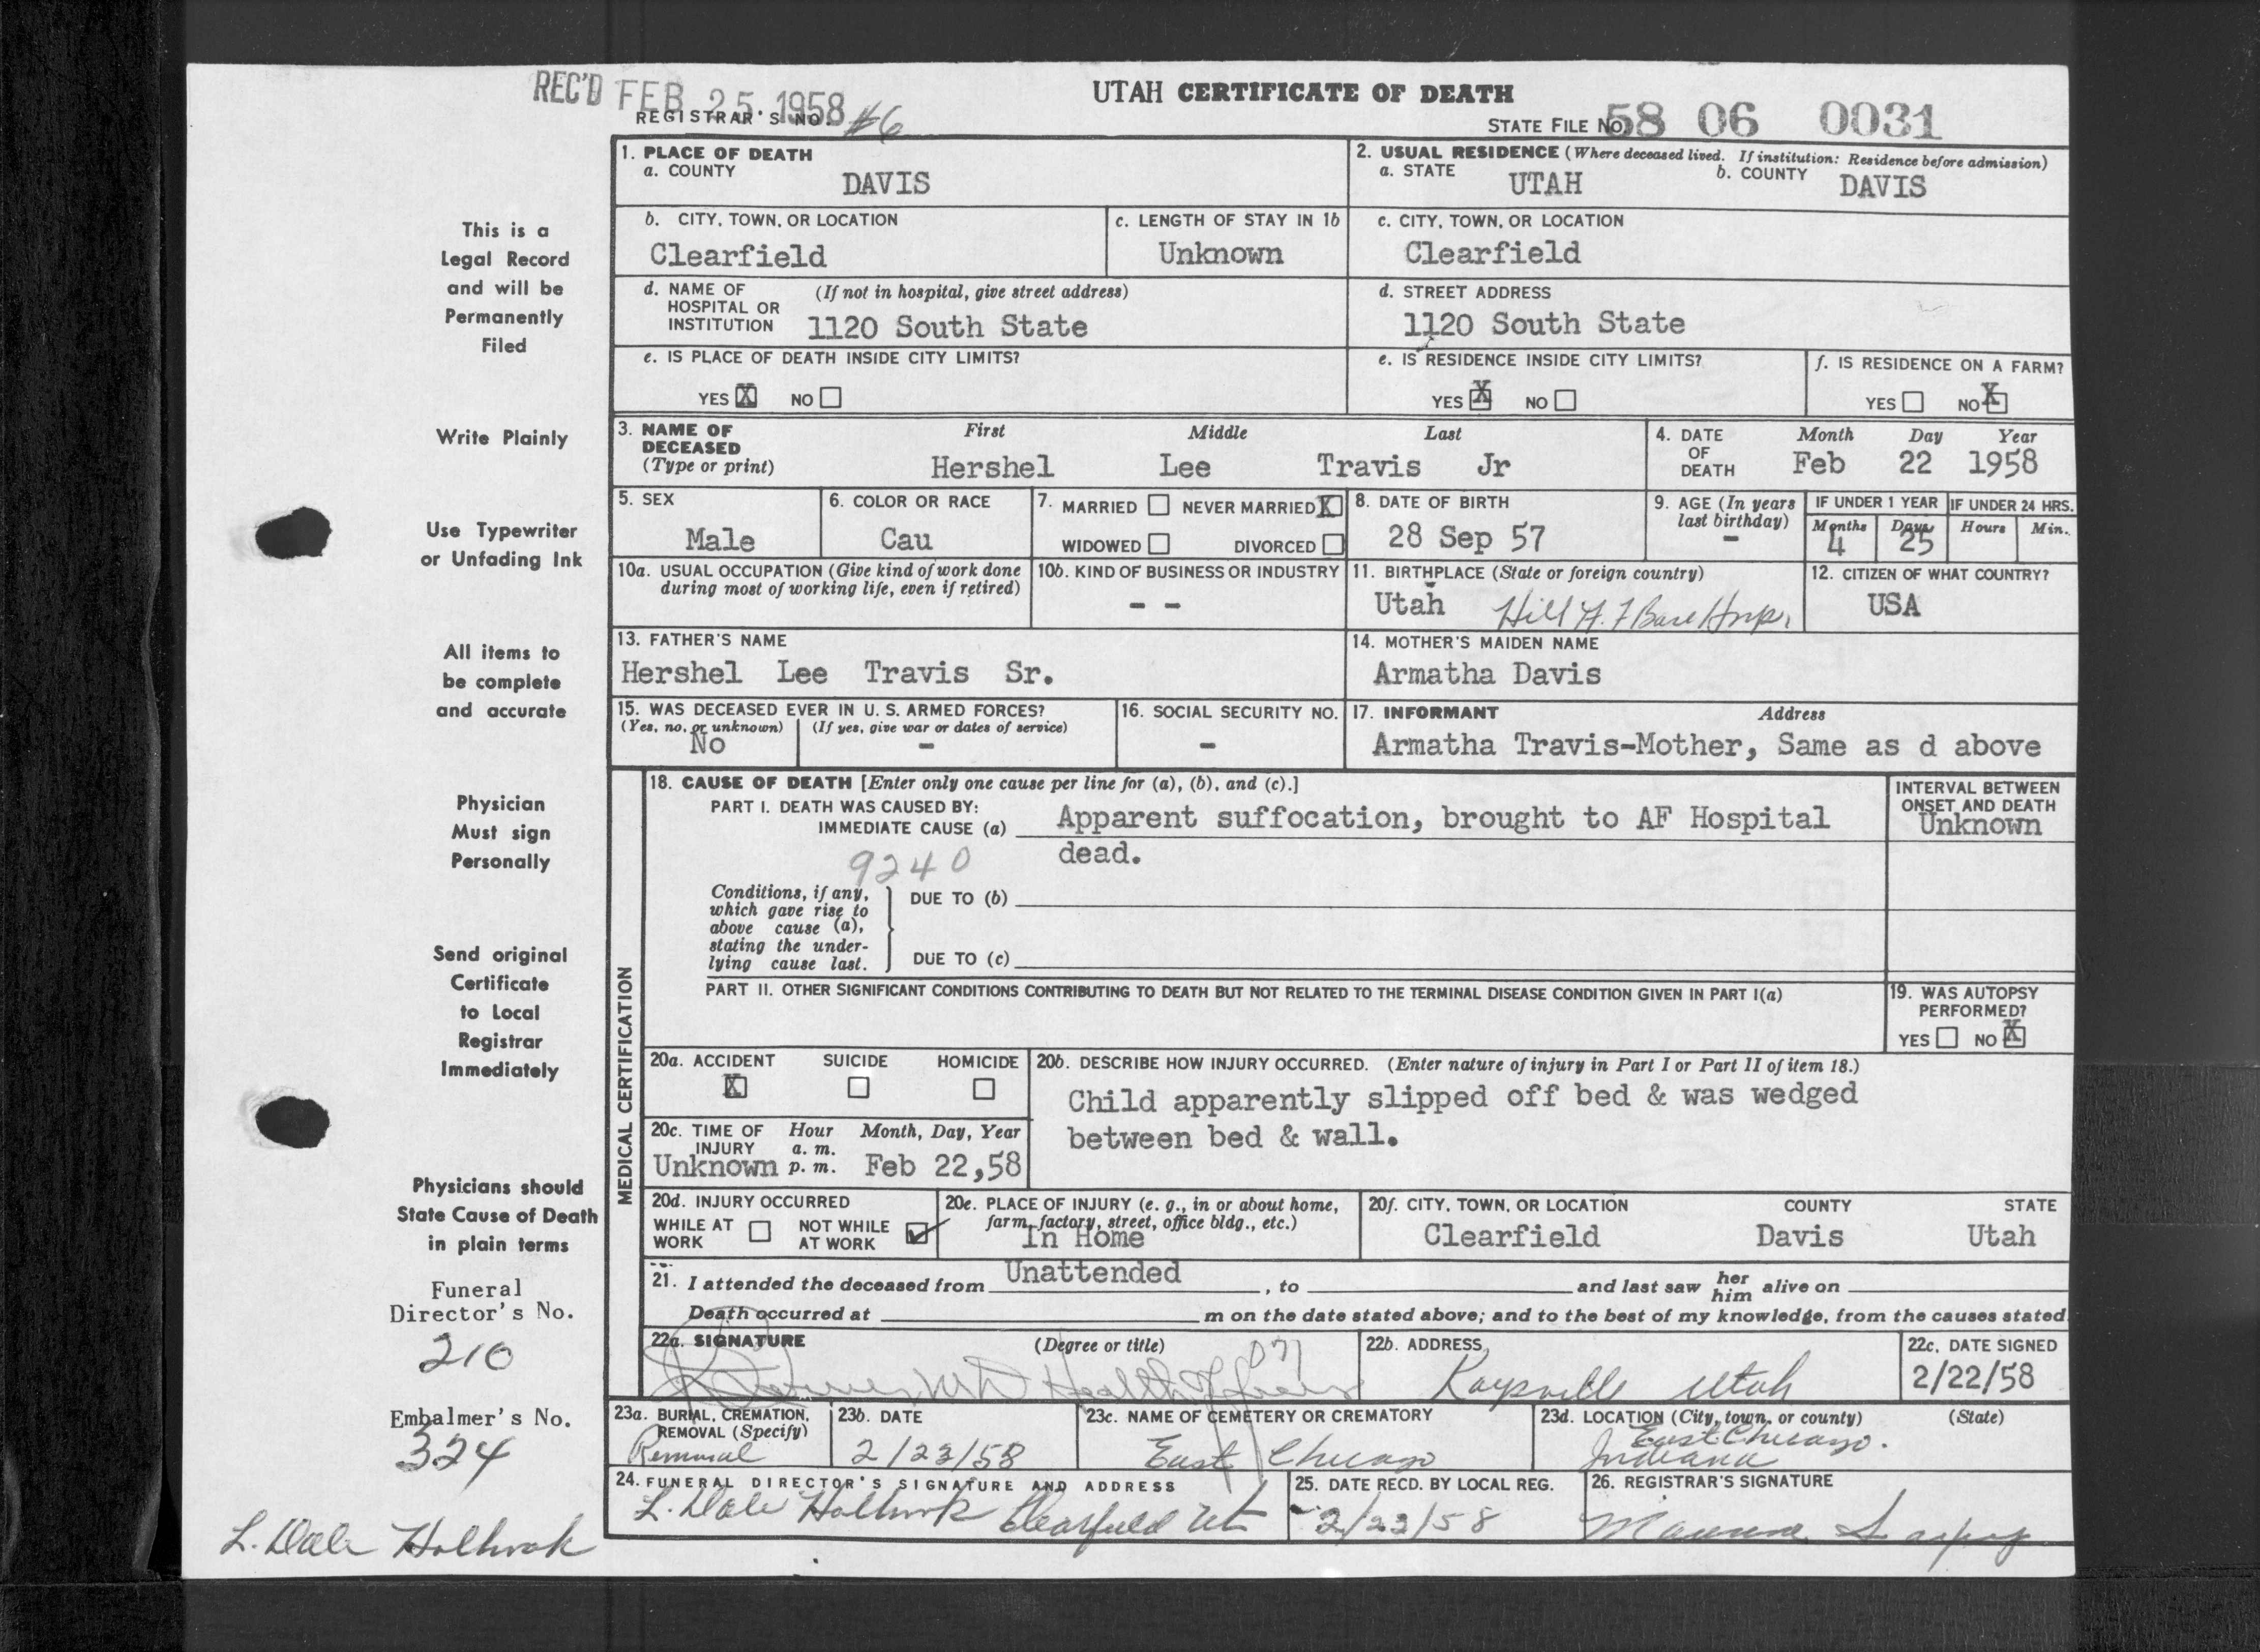 REC'D FEB 25 1958
UTAH CERTIFICATE OF DEATH
REGISTRAR'S NO. #6
STATE FILE NO. 58 06 0031
This is a
Legal Record
and will be
Permanently
Filed
Write Plainly
Use Typewriter
or Unfading Ink
All items to
be complete
and accurate
Physician
Must sign
Personally
Send original
Certificate
to Local
Registrar
Immediately
Physicians should
State Cause of Death
in plain terms
Funeral
Director's No.
210
Embalmer's No.
324
L. Dale Holbrook
1. PLACE OF DEATH
a. COUNTY
DAVIS
2. USUAL RESIDENCE (Where deceased lived. If institution: Residence before admission)
a. STATE UTAH b. COUNTY DAVIS
b. CITY, TOWN, OR LOCATION
Clearfield
c. LENGTH OF STAY IN 1b
Unknown
c. CITY, TOWN, OR LOCATION
Clearfield
d. NAME OF HOSPITAL OR INSTITUTION (If not in hospital, give street address)
1120 South State
d. STREET ADDRESS
1120 South State
e. IS PLACE OF DEATH INSIDE CITY LIMITS?
YES X NO
e. IS RESIDENCE INSIDE CITY LIMITS?
YES X NO
f. IS RESIDENCE ON A FARM?
YES NO X
3. NAME OF DECEASED (Type or print)
First Middle Last
Hershel Lee Travis Jr
4. DATE OF DEATH
Month Day Year
Feb 22 1958
5. SEX
Male
6. COLOR OR RACE
Cau
7. MARRIED NEVER MARRIED X
WIDOWED DIVORCED
8. DATE OF BIRTH
28 Sep 57
9. AGE (In years last birthday)
-
IF UNDER 1 YEAR
Months Days
4 25
IF UNDER 24 HRS.
Hours Min.
10a. USUAL OCCUPATION (Give kind of work done during most of working life, even if retired)
10b. KIND OF BUSINESS OR INDUSTRY
- -
11. BIRTHPLACE (State or foreign country)
Utah Hill A. F Base Hosp.
12. CITIZEN OF WHAT COUNTRY?
USA
13. FATHER'S NAME
Hershel Lee Travis Sr.
14. MOTHER'S MAIDEN NAME
Armatha Davis
15. WAS DECEASED EVER IN U. S. ARMED FORCES?
(Yes, no, or unknown) (If yes, give war or dates of service)
No -
16. SOCIAL SECURITY NO.
-
17. INFORMANT Address
Armatha Travis-Mother, Same as d above
MEDICAL CERTIFICATION
18. CAUSE OF DEATH [Enter only one cause per line for (a), (b), and (c).]
PART I. DEATH WAS CAUSED BY:
IMMEDIATE CAUSE (a) Apparent suffocation, brought to AF Hospital
dead.
9240
INTERVAL BETWEEN ONSET AND DEATH
Unknown
Conditions, if any, which gave rise to above cause (a), stating the underlying cause last.
DUE TO (b)
DUE TO (c)
PART II. OTHER SIGNIFICANT CONDITIONS CONTRIBUTING TO DEATH BUT NOT RELATED TO THE TERMINAL DISEASE CONDITION GIVEN IN PART I(a)
19. WAS AUTOPSY PERFORMED?
YES NO X
20a. ACCIDENT SUICIDE HOMICIDE
X
20b. DESCRIBE HOW INJURY OCCURRED. (Enter nature of injury in Part I or Part II of item 18.)
Child apparently slipped off bed & was wedged
between bed & wall.
20c. TIME OF INJURY Hour Month, Day, Year
a. m.
Unknown p. m. Feb 22,58
20d. INJURY OCCURRED
WHILE AT WORK NOT WHILE AT WORK ✓
20e. PLACE OF INJURY (e. g., in or about home, farm, factory, street, office bldg., etc.)
In Home
20f. CITY, TOWN, OR LOCATION COUNTY STATE
Clearfield Davis Utah
21. I attended the deceased from Unattended, to and last saw her him alive on
Death occurred at m on the date stated above; and to the best of my knowledge, from the causes stated
22a. SIGNATURE (Degree or title)
MD Health Officer 071
22b. ADDRESS
Kaysville Utah
22c. DATE SIGNED
2/22/58
23a. BURIAL, CREMATION, REMOVAL (Specify)
Removal
23b. DATE
2/23/58
23c. NAME OF CEMETERY OR CREMATORY
East Chicago
23d. LOCATION (City, town, or county) (State)
East Chicago.
Indiana
24. FUNERAL DIRECTOR'S SIGNATURE AND ADDRESS
L. Dale Holbrook Clearfield Ut
25. DATE RECD. BY LOCAL REG.
2/23/58
26. REGISTRAR'S SIGNATURE